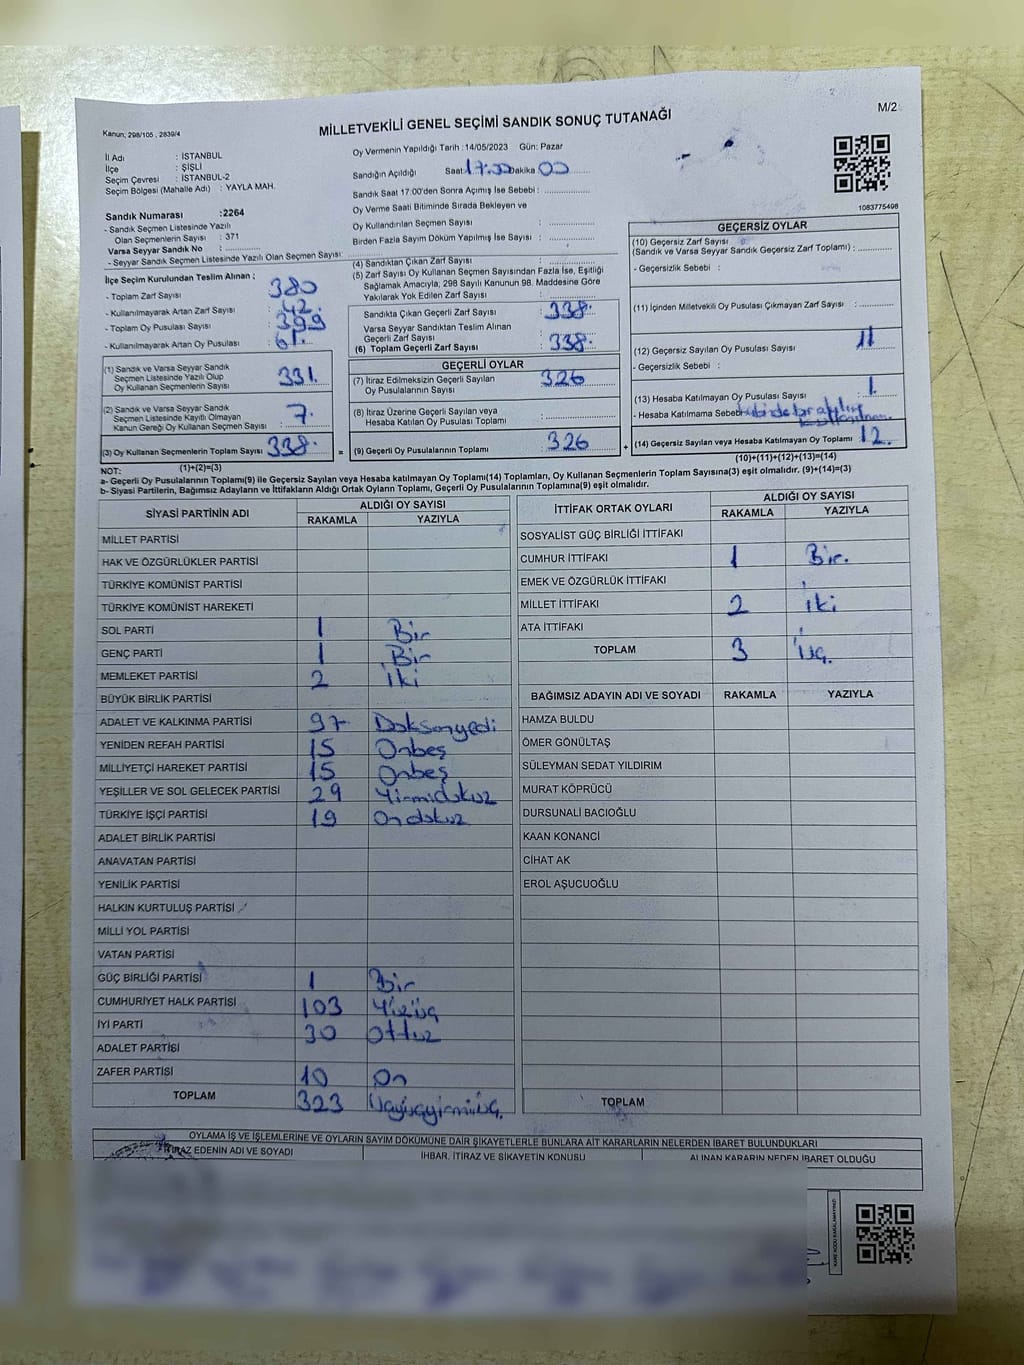 M/2
Kanun; 298/105 , 2839/4
MİLLETVEKİLİ GENEL SEÇİMİ SANDIK SONUÇ TUTANAĞI
İl Adı : İSTANBUL
İlçe : ŞİŞLİ
Seçim Çevresi : İSTANBUL-2
Seçim Bölgesi (Mahalle Adı) : YAYLA MAH.
Oy Vermenin Yapıldığı Tarih :14/05/2023 Gün: Pazar
Sandığın Açıldığı Saat 17:00 Dakika 00
Sandık Saat 17:00'den Sonra Açımış İse Sebebi :
Oy Verme Saati Bitiminde Sırada Bekleyen ve
Oy Kullandırılan Seçmen Sayısı :
Birden Fazla Sayım Döküm Yapılmış İse Sayısı :
1083775498
Sandık Numarası :2264
- Sandık Seçmen Listesinde Yazılı
Olan Seçmenlerin Sayısı : 371
Varsa Seyyar Sandık No :
- Seyyar Sandık Seçmen Listesinde Yazılı Olan Seçmen Sayısı:
İlçe Seçim Kurulundan Teslim Alınan ;
- Toplam Zarf Sayısı : 380
- Kullanılmayarak Artan Zarf Sayısı : 42.
- Toplam Oy Pusulası Sayısı : 399
- Kullanılmayarak Artan Oy Pusulası : 61.
(1) Sandık ve Varsa Seyyar Sandık
Seçmen Listesinde Yazılı Olup
Oy Kullanan Seçmenlerin Sayısı : 331.
(2) Sandık ve Varsa Seyyar Sandık
Seçmen Listesinde Kayıtlı Olmayan
Kanun Gereği Oy Kullanan Seçmen Sayısı : 7.
(3) Oy Kullanan Seçmenlerin Toplam Sayısı : 338.
(1)+(2)=(3)
(4) Sandıktan Çıkan Zarf Sayısı :
(5) Zarf Sayısı Oy Kullanan Seçmen Sayısından Fazla İse, Eşitliği
Sağlamak Amacıyla; 298 Sayılı Kanunun 98. Maddesine Göre
Yakılarak Yok Edilen Zarf Sayısı :
Sandıkta Çıkan Geçerli Zarf Sayısı : 338.
Varsa Seyyar Sandıktan Teslim Alınan
Geçerli Zarf Sayısı :
(6) Toplam Geçerli Zarf Sayısı : 338.
GEÇERLİ OYLAR
(7) İtiraz Edilmeksizin Geçerli Sayılan
Oy Pusulalarının Sayısı : 326
(8) İtiraz Üzerine Geçerli Sayılan veya
Hesaba Katılan Oy Pusulası Toplamı :
= (9) Geçerli Oy Pusulalarının Toplamı : 326 +
GEÇERSİZ OYLAR
(10) Geçersiz Zarf Sayısı
(Sandık ve Varsa Seyyar Sandık Geçersiz Zarf Toplamı) :
- Geçersizlik Sebebi :
(11) İçinden Milletvekili Oy Pusulası Çıkmayan Zarf Sayısı :
(12) Geçersiz Sayılan Oy Pusulası Sayısı : 11
- Geçersizlik Sebebi :
(13) Hesaba Katılmayan Oy Pusulası Sayısı : 1.
- Hesaba Katılmama Sebebi
(14) Geçersiz Sayılan veya Hesaba Katılmayan Oy Toplamı : 12.
(10)+(11)+(12)+(13)=(14)
NOT:
a- Geçerli Oy Pusulalarının Toplamı(9) ile Geçersiz Sayılan veya Hesaba katılmayan Oy Toplamı(14) Toplamları, Oy Kullanan Seçmenlerin Toplam Sayısına(3) eşit olmalıdır. (9)+(14)=(3)
b- Siyasi Partilerin, Bağımsız Adayların ve İttifakların Aldığı Ortak Oyların Toplamı, Geçerli Oy Pusulalarının Toplamına(9) eşit olmalıdır.
SİYASİ PARTİNİN ADI ALDIĞI OY SAYISI
RAKAMLA YAZIYLA
MİLLET PARTİSİ
HAK VE ÖZGÜRLÜKLER PARTİSİ
TÜRKİYE KOMÜNİST PARTİSİ
TÜRKİYE KOMÜNİST HAREKETİ
SOL PARTİ 1 Bir
GENÇ PARTİ 1 Bir
MEMLEKET PARTİSİ 2 iki
BÜYÜK BİRLİK PARTİSİ
ADALET VE KALKINMA PARTİSİ 97 Doksanyedi
YENİDEN REFAH PARTİSİ 15 Onbeş
MİLLİYETÇİ HAREKET PARTİSİ 15 Onbeş
YEŞİLLER VE SOL GELECEK PARTİSİ 29 Yirmidokuz
TÜRKİYE İŞÇİ PARTİSİ 19 Ondokuz
ADALET BİRLİK PARTİSİ
ANAVATAN PARTİSİ
YENİLİK PARTİSİ
HALKIN KURTULUŞ PARTİSİ
MİLLİ YOL PARTİSİ
VATAN PARTİSİ
GÜÇ BİRLİĞİ PARTİSİ 1 Bir
CUMHURİYET HALK PARTİSİ 103 Yüzüç
İYİ PARTİ 30 Ottuz
ADALET PARTİSİ
ZAFER PARTİSİ 10 On
TOPLAM 323 Üçyüzyirmiüç.
İTTİFAK ORTAK OYLARI ALDIĞI OY SAYISI
RAKAMLA YAZIYLA
SOSYALİST GÜÇ BİRLİĞİ İTTİFAKI
CUMHUR İTTİFAKI 1 Bir.
EMEK VE ÖZGÜRLÜK İTTİFAKI
MİLLET İTTİFAKI 2 iki
ATA İTTİFAKI
TOPLAM 3 üç.
BAĞIMSIZ ADAYIN ADI VE SOYADI RAKAMLA YAZIYLA
HAMZA BULDU
ÖMER GÖNÜLTAŞ
SÜLEYMAN SEDAT YILDIRIM
MURAT KÖPRÜCÜ
DURSUNALİ BACIOĞLU
KAAN KONANCİ
CİHAT AK
EROL AŞUCUOĞLU
TOPLAM
OYLAMA İŞ VE İŞLEMLERİNE VE OYLARIN SAYIM DÖKÜMÜNE DAİR ŞİKAYETLERLE BUNLARA AİT KARARLARIN NELERDEN İBARET BULUNDUKLARI
İTİRAZ EDENİN ADI VE SOYADI İHBAR, İTİRAZ VE ŞİKAYETİN KONUSU ALINAN KARARIN NEDEN İBARET OLDUĞU